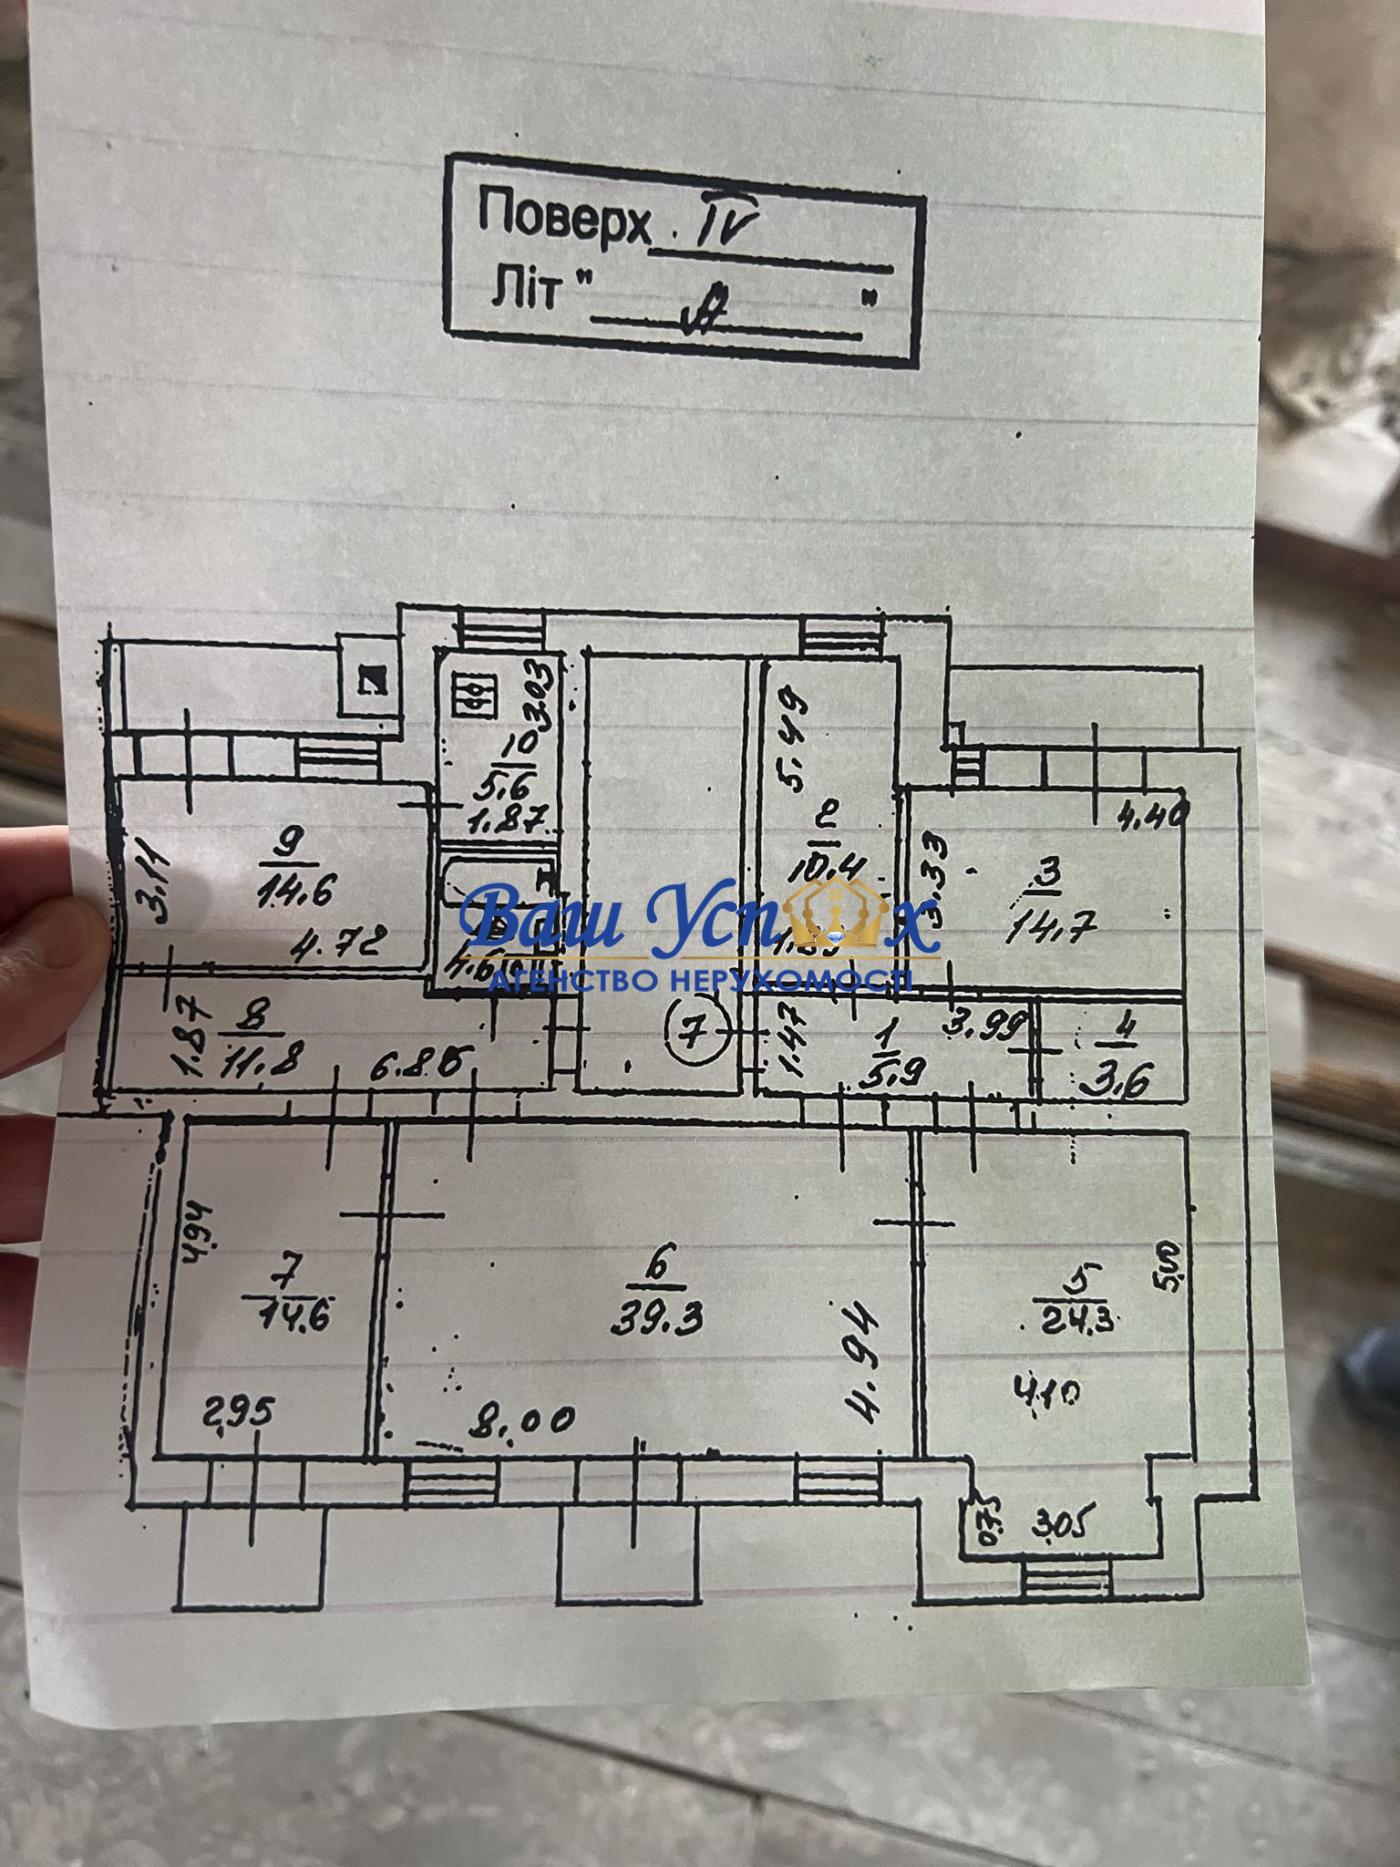 Поверх IV
Літ " А "
3.03
10
5.6
1.87
5.49
2
10.4
4.40
3.33
3
14.7
3.11
9
14.6
4.72
Ваш Успіх
АГЕНСТВО НЕРУХОМОСТІ
1.87
8
11.8
6.85
7
1.47
1
5.9
3.99
4
3.6
4.94
7
14.6
2.95
6
39.3
8.00
4.94
5
24.3
5.00
4.10
0.75
3.05